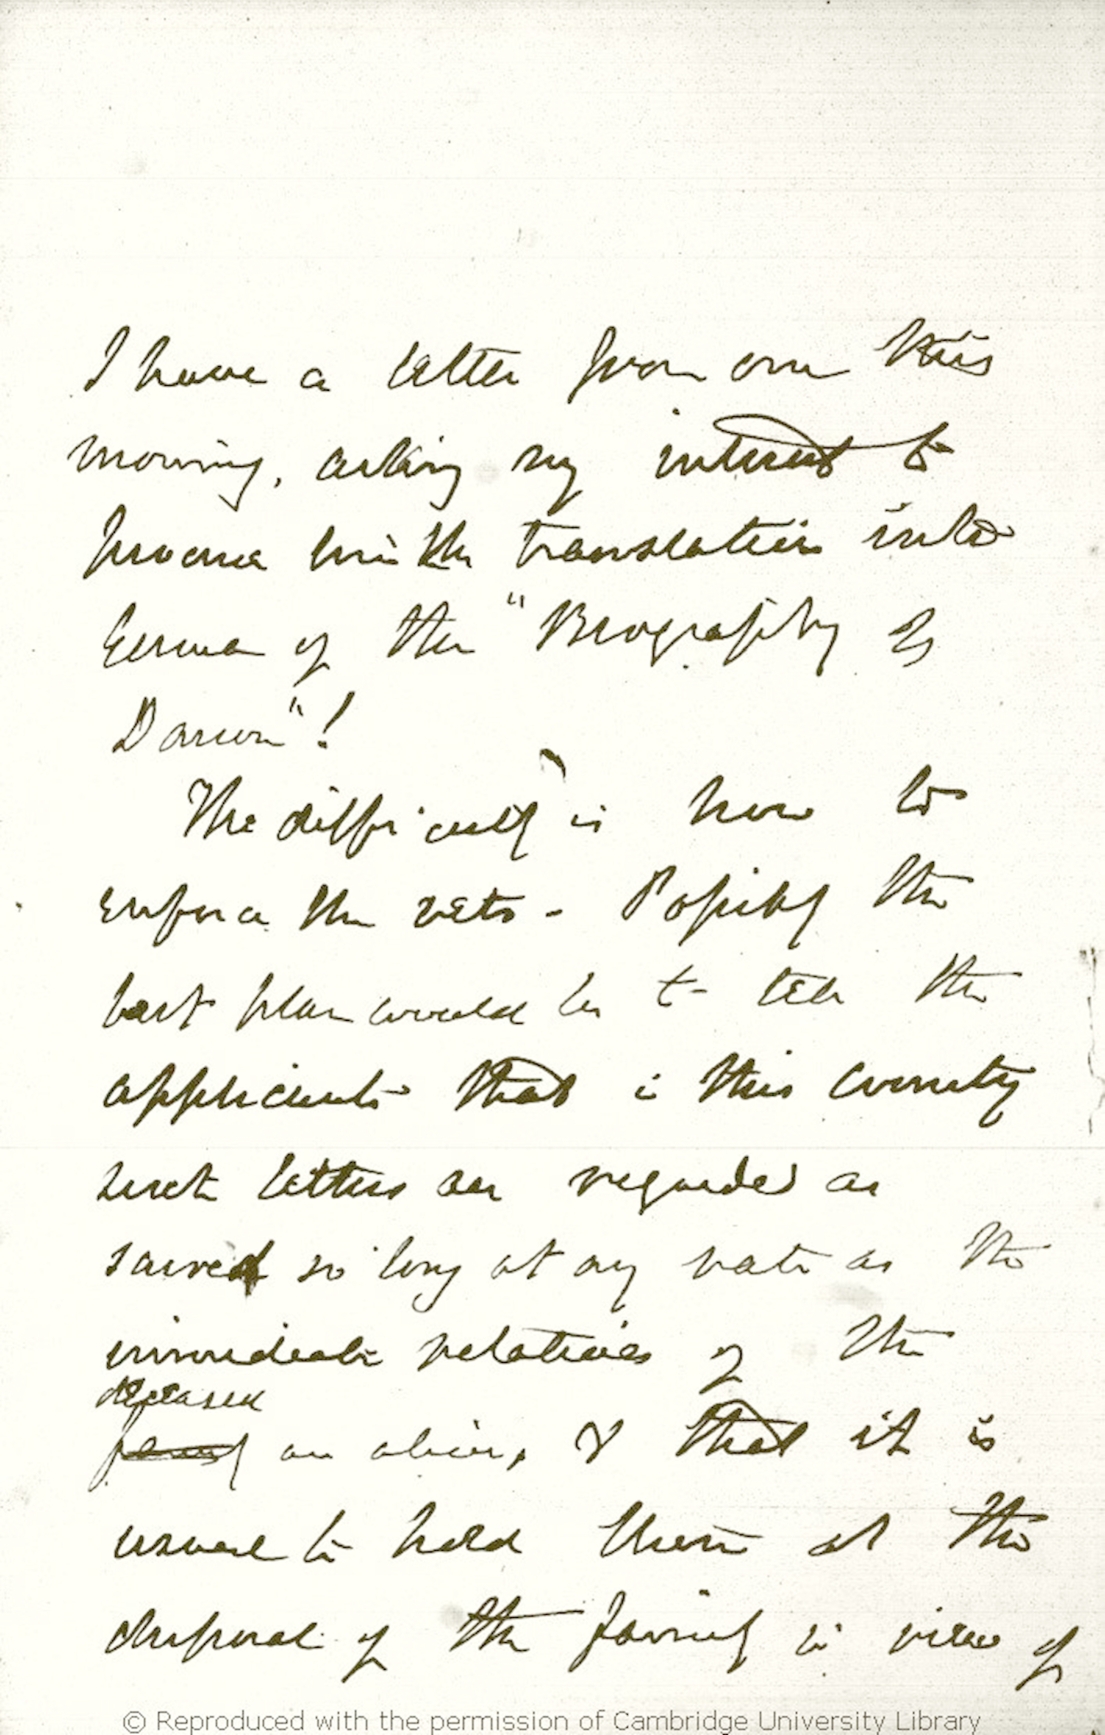 I have a letter from one this
morning, asking my interest to
procure him the translation into
German of the "Biography of
Darwin"!
The difficulty is how to
enforce the veto – Possibly the
best plan would be to tell the
applicants that in this country
such letters are regarded as
sacred so long at any rate as the
immediate relatives of the
deceased
are alive, & that it is
usual to hold them at the
disposal of the family in view of
© Reproduced with the permission of Cambridge University Library